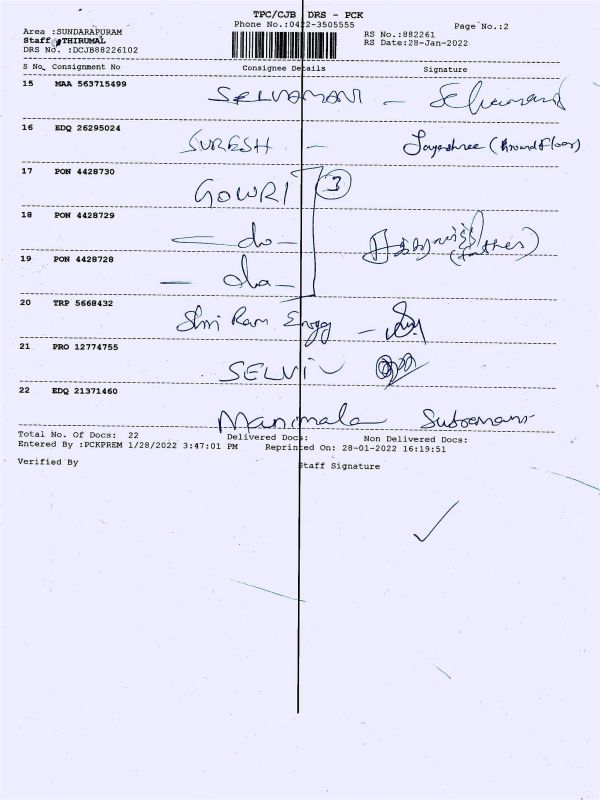 TPC/CJB DRS - PCK
Phone No.:0422-3505555
Page No.:2
Area :SUNDARAPURAM
RS No.:882261
Staff :THIRUMAL
RS Date:28-Jan-2022
DRS No. :DCJB88226102
S No. Consignment No Consignee Details Signature
15 MAA 563715499 SELVAMANI - Selvamani
16 EDQ 26295024 SURESH - Jayashree (Ground Floor)
17 PON 4428730 GOWRI 3
18 PON 4428729 - do - (father)
19 PON 4428728 - do -
20 TRP 5668432 Shri Ram Engg -
21 PRO 12774755 SELVI
22 EDQ 21371460 Manimala
Total No. Of Docs: 22 Delivered Docs: Non Delivered Docs:
Entered By :PCKPREM 1/28/2022 3:47:01 PM Reprinted On: 28-01-2022 16:19:51
Verified By Staff Signature